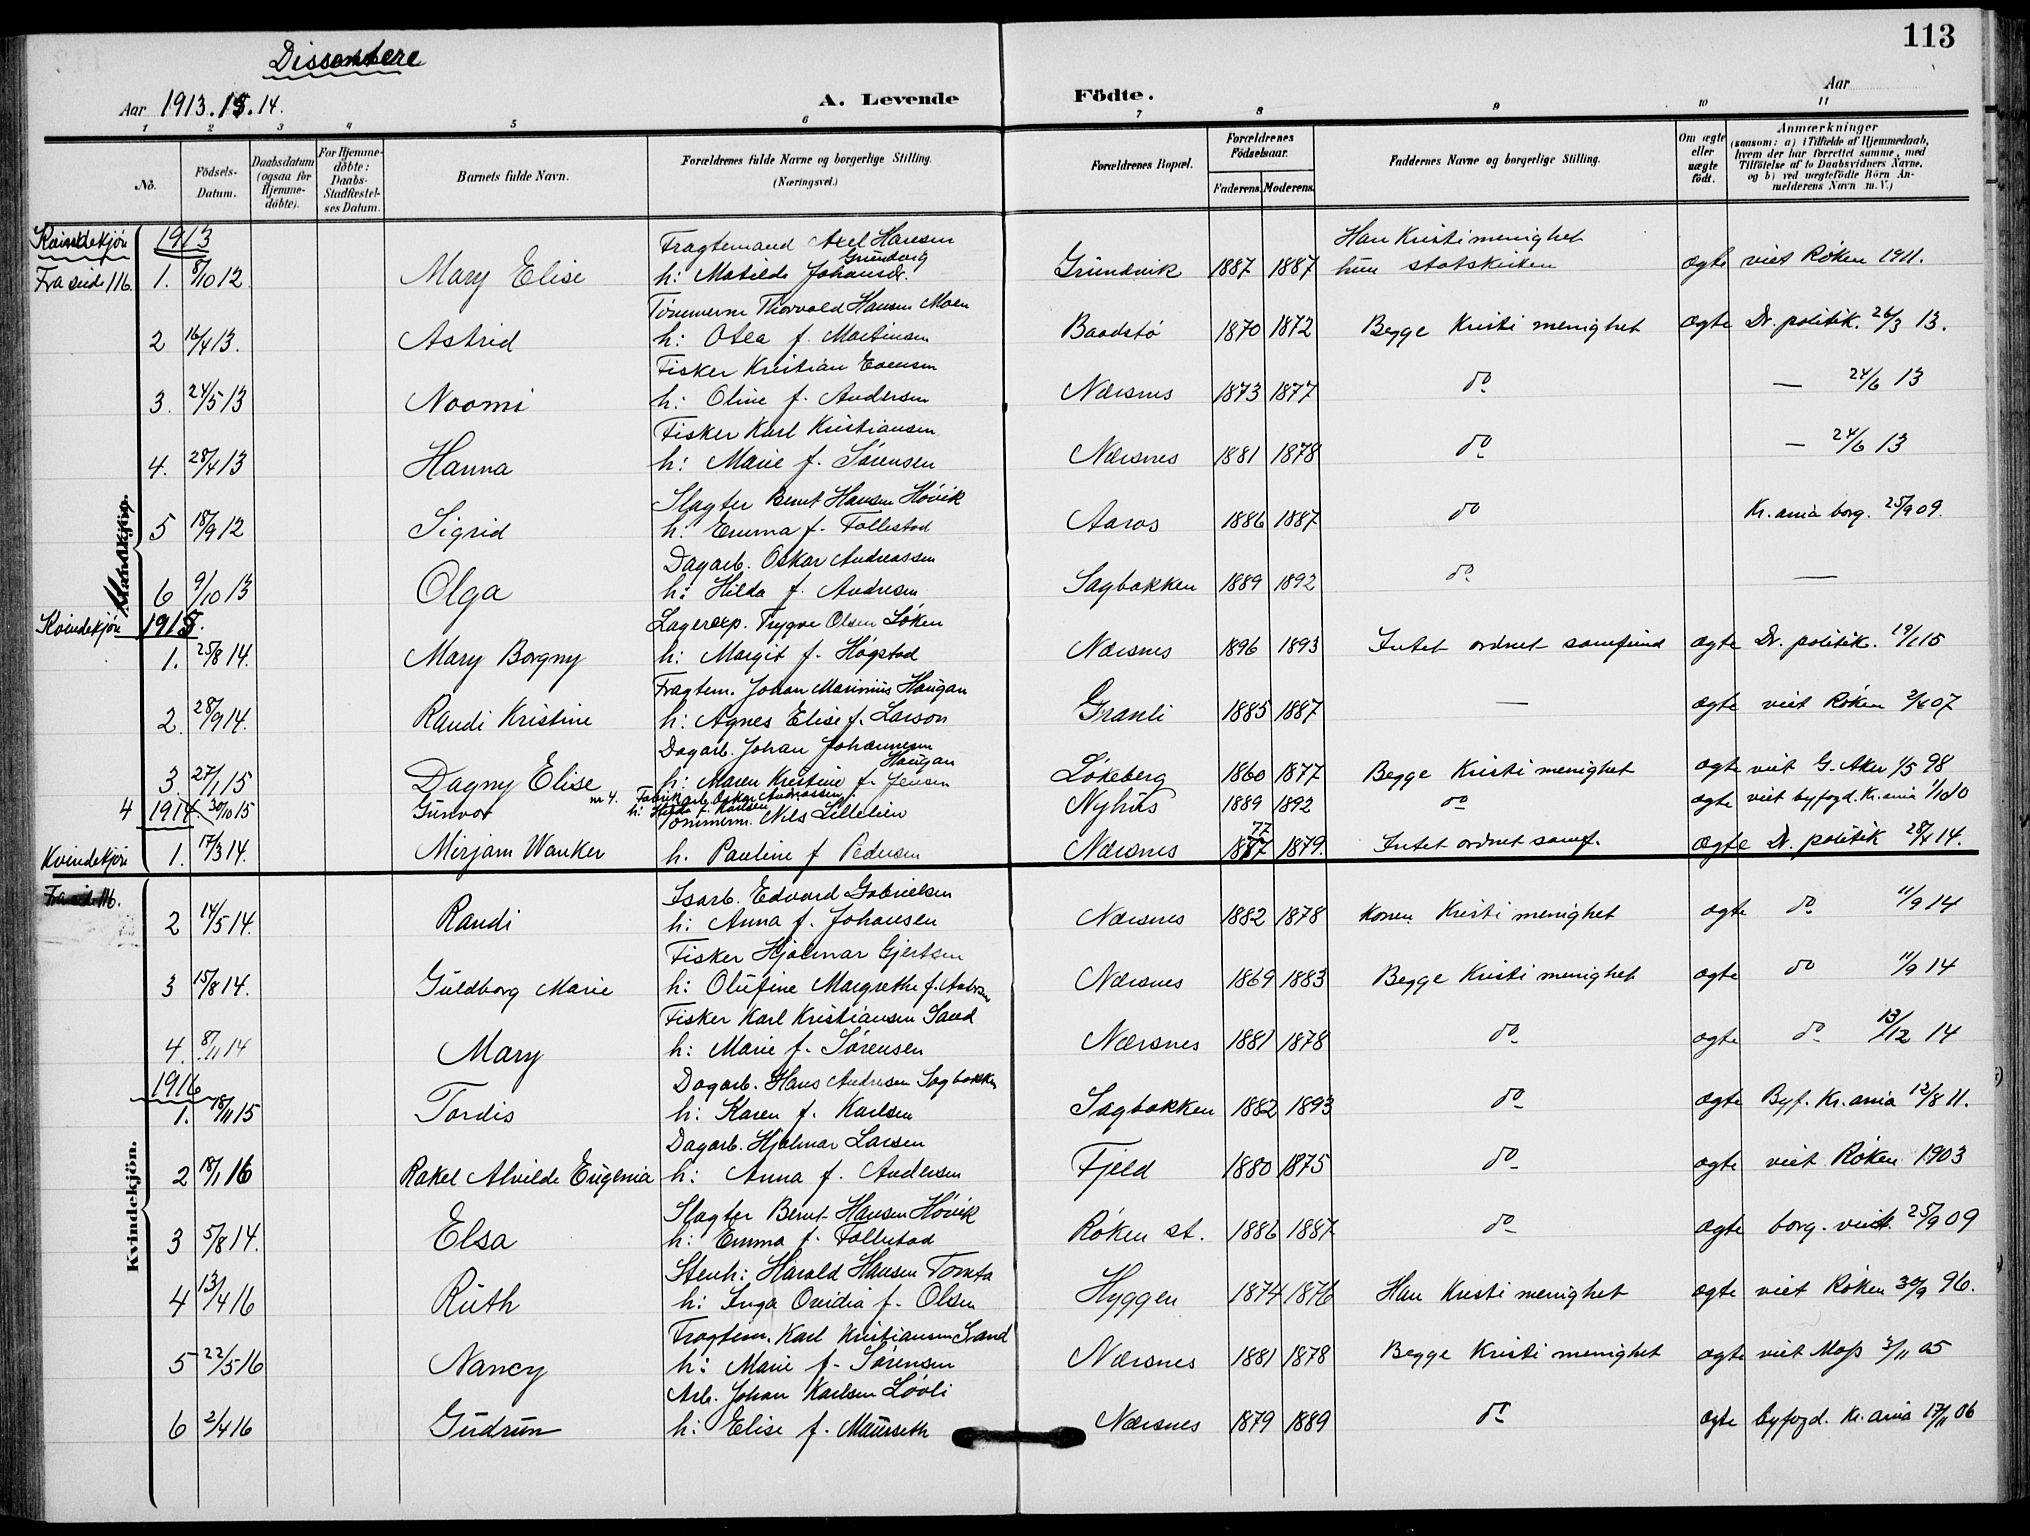 113
Dissentere
Aar 1913. 15. 14.
A. Levende Födte.
Aar
1 2 3 4 5 6 7 8 9 10 11
No.
Födsels-Datum.
Daabsdatum (ogsaa for Hjemme-döbte).
For Hjemme-döbte: Daabs-Stadfæstel-ses Datum.
Barnets fulde Navn.
Forældrenes fulde Navne og borgerlige Stilling. (Næringsvei.)
Forældrenes Bopæl.
Forældrenes Födselsaar.
Faderens. Moderens.
Faddernes Navne og borgerlige Stilling.
Om ægte eller uægte födt.
Anmærkninger (saasom: a) i Tilfælde af Hjemmedaab, hvem der har forrettet samme, med Tilföielse af to Daabsvidners Navne, og b) ved uægtefödte Börn An-melderens Navn m. V.)
Kvindekjön 1913
Fra side 116.
Fragtemand Axel Hansen Grundvig Han Kristi menighet
1. 8/10 12 Mary Elise h: Matilde Johansdr. Grundvik 1887 1887 hun statskirken ægte viet Röken 1911.
Tömmerm Thorvald Hansen Moen
2 16/4 13. Astrid h: Otea f. Martinsen Baadstö 1870 1872 Begge Kristi menighet ægte Dr. politik. 26/3 13.
Fisker Kristian Evensen
3. 24/5 13 Noomi h: Oline f. Andersen Nærsnes 1873 1877 do — 24/6 13
Fisker Karl Kristiansen
4. 28/4 13 Hanna h: Marie f. Sørensen Nærsnes 1881 1878 do — 24/6 13
Slagter Bernt Hansen Hövik
5 18/9 12 Sigrid h: Emma f. Follestad Aaros 1886 1887 do Kr.ania borg. 25/9 09.
Mandkjön.
Dagarb. Oskar Andreassen
6 9/10 13 Olga h: Hilda f. Andresen Sagbakken 1889 1892 do —
Kvindekjön 1915.
Lagerexp. Trygve Olsen Löken
1. 25/8 14. Mary Borgny h: Margit f. Högstad Nærsnes 1896 1893 Intet ordnet samfund ægte Dr. politik. 19/1 15
Fragtem. Johan Marinius Haugan
2. 28/9 14. Randi Kristine h: Agnes Elise f. Larson Granli 1885 1887 — ægte viet Röken 2/6 07
Dagarb. Johan Johannesen Haugan
3. 27/1 15 Dagny Elise h: Maren Kristine f. Jensen Lökeberg 1860 1877 Begge Kristi menighet ægte viet G. Aker 1/5 98
nr 4. Fabrikarb. Oskar Andreassen
4 30/10 15 Gunvor h: Hilda f. Karlsen Nyhus 1889 1892 do ægte viet byfogd. Kr.ania 1/10 10
1914.
Tömmerm. Nils Lillelien
Kvindekjön 1. 17/3 14. Mirjam Wanker h. Pauline f Pedersen Nærsnes 1877 77 1879. Intet ordnet samf. ægte Dr. politik 28/4 14.
Fra side 116.
Isarb. Edvard Gabrielsen
2 14/5 14. Randi h: Anna f. Johansen Nærsnes 1882 1878 Konen Kristi menighet ægte do 11/9 14
Fisker Hjalmar Gjertsen
3 15/8 14. Guldborg Marie h: Olufine Margrethe f. Nærsnes 1869 1883 Begge Kristi menighet ægte do 11/9 14
Fisker Karl Kristiansen Sand
4. 8/11 14 Mary h: Marie f. Sørensen Nærsnes 1881 1878 do ægte do 13/12 14
1916
Dagarb. Hans Andresen Sagbakken
1. 18/11 15 Tordis h: Karen f. Karlsen Sagbakken 1882 1893 do ægte Byf. Kr.ania 12/8 11.
Dagarb. Hjalmar Larsen
2 18/1 16 Rakel Alvilde Eugenia h: Anna f. Andersen Fjeld 1880 1875 do ægte viet Röken 1903
Kvindekjön.
Slagter Bernt Hansen Hövik
3 5/8 14. Elsa h: Emma f. Follestad Röken st. 1886 1887 do ægte borg. viet. 25/9 09
Stenh: Harald Hansen Tomta
4 13/4 16 Ruth h: Inga Ovidia f. Olsen Hyggen 1874 1876 Han Kristi menighet ægte viet Röken 30/9 96.
Fragtem. Karl Kristiansen Sand
5 22/5 16 Nancy h: Marie f. Sørensen Nærsnes 1881 1878 Begge Kristi menighet ægte viet Moss 3/11 05
Arb. Johan Karlsen Lövli
6 2/4 16 Gudrun h: Elise f. Maurseth Nærsnes 1879 1889 do ægte byfogd. Kr.ania 17/11 06